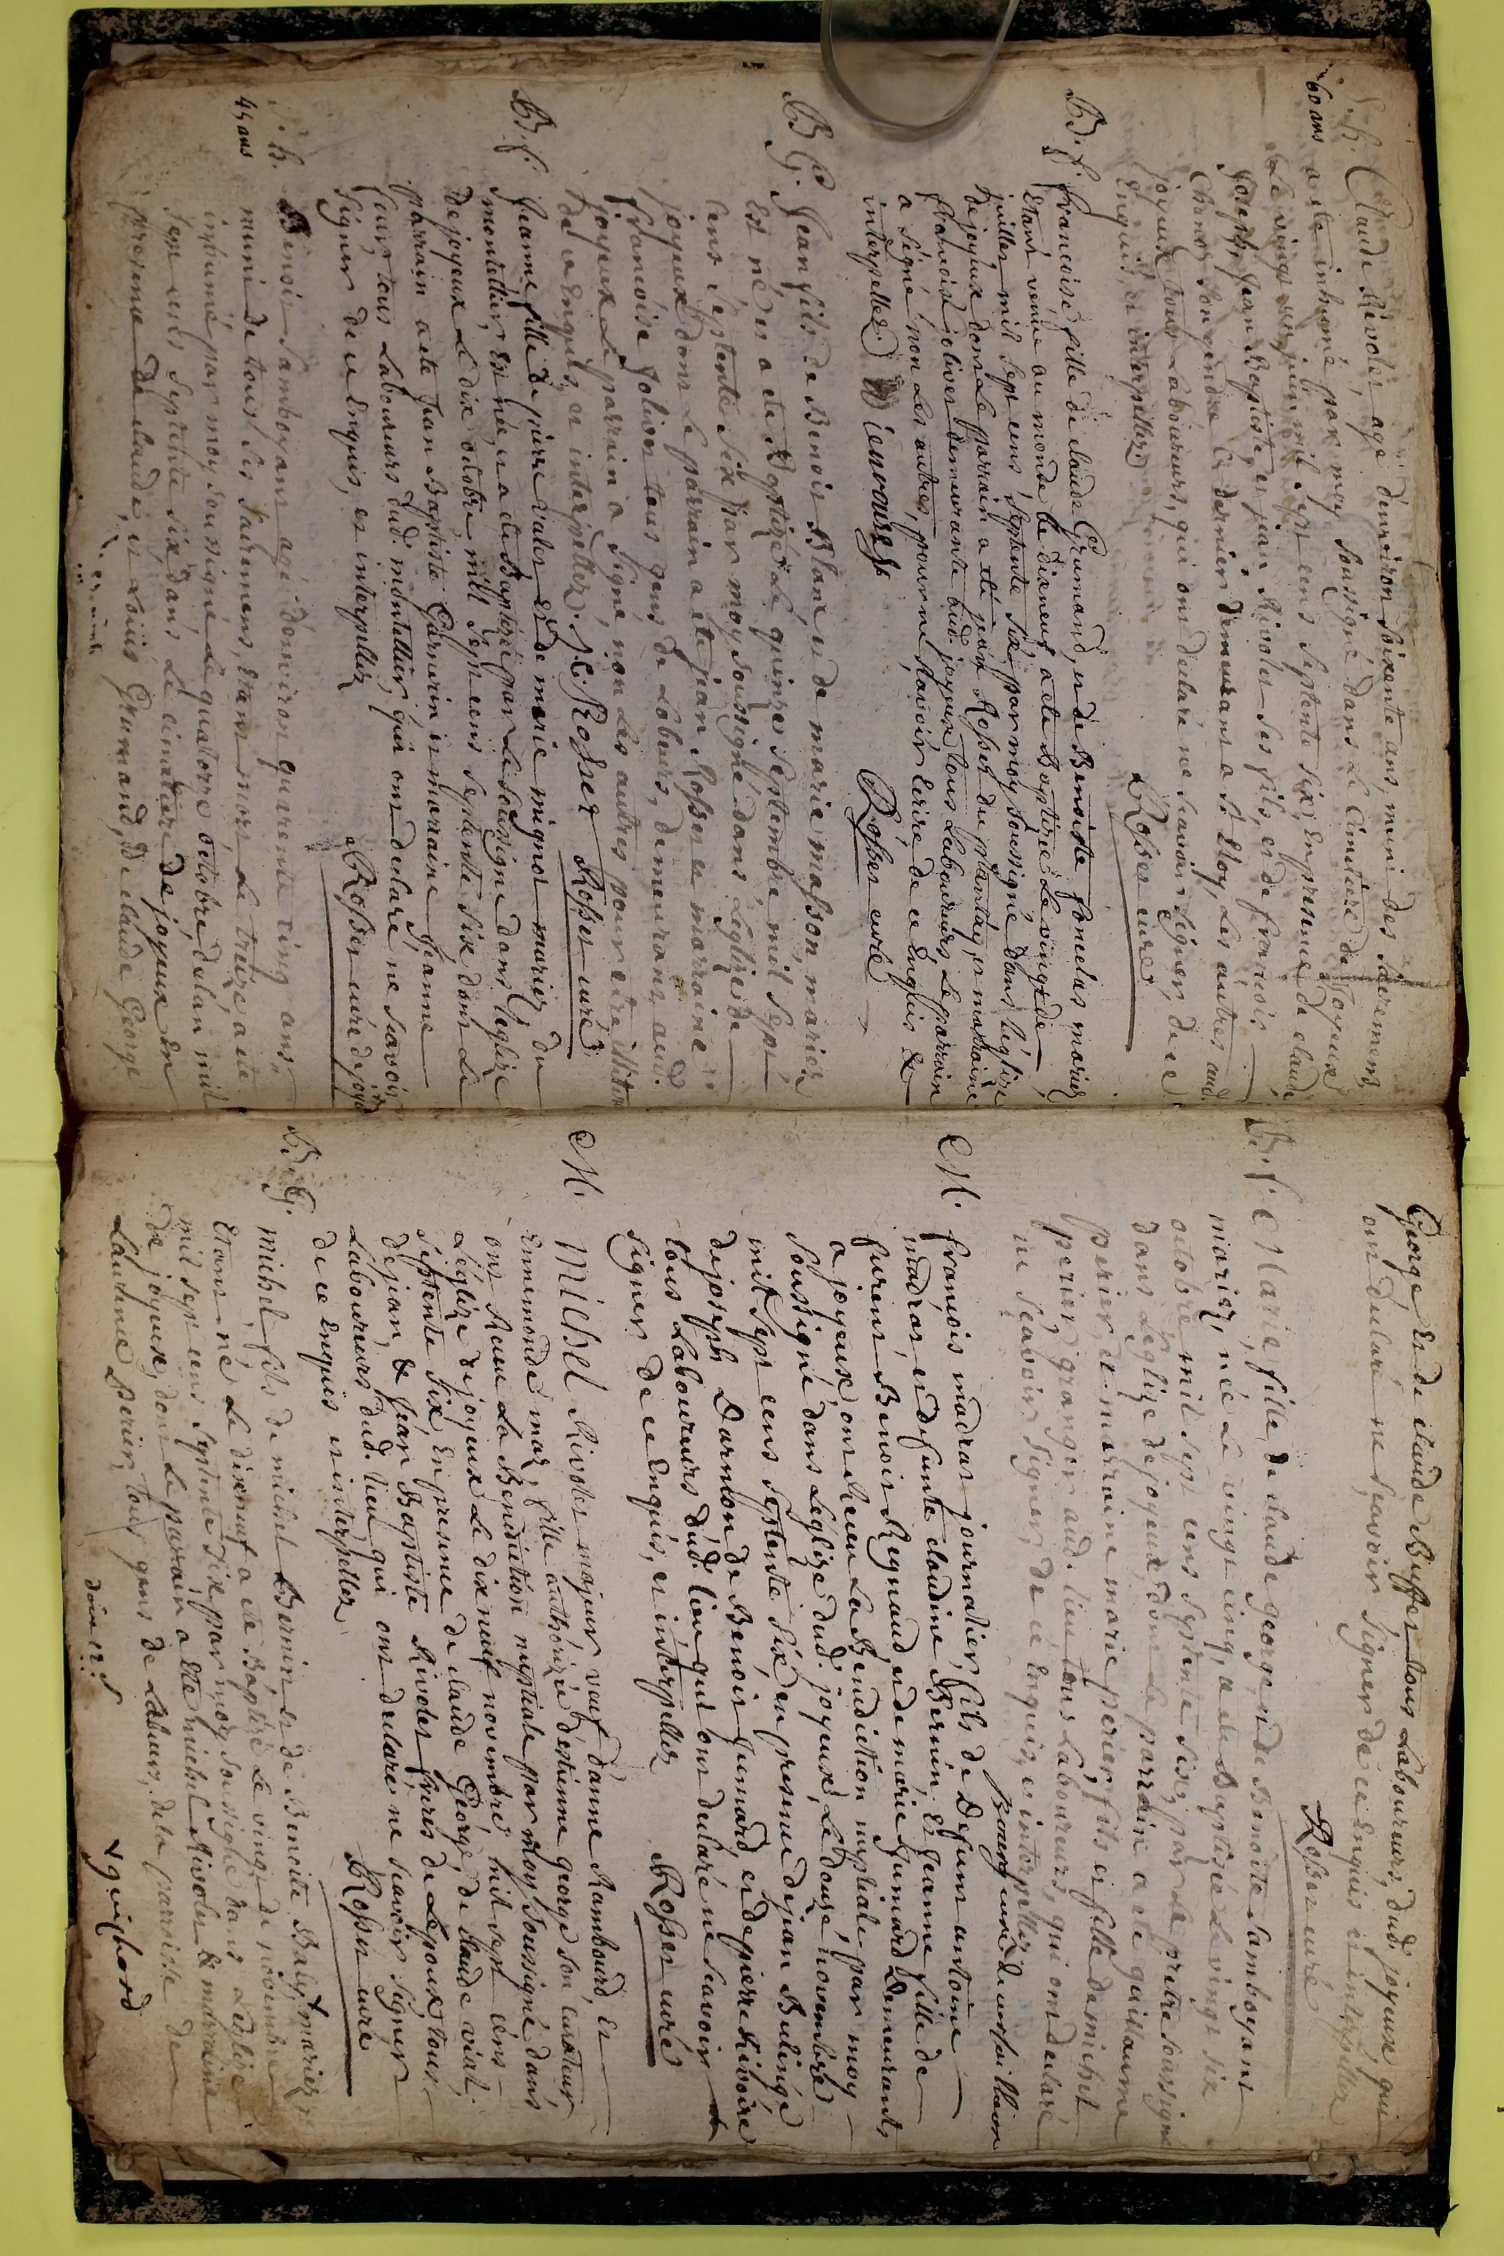 S. h. Claude Rivolet, agé d'environ soixente ans, muni des sacremens
60 ans a ete inhumé par moy soussigné dans le Cimetiere de Joyeux
le vingt juin mil sept cens septente six, En presence de claude
joseph, jean Baptiste, et jean Rivolet ses fils, et de francois
Chanet son gendre ce dernier demeurant a St Eloy, les autres aud.
joyeux, tous Laboureurs, qui ont declaré ne scavoir signer, de ce
Enquis, et interpellez
Rosset curé
B. f. francoise, fille de claude Grumand, et de Benoite mariez
Etant venue au monde le dixneuf a ete Baptisée le vingt de
juillet mil sept cens septente six par moy soussigné dans l'eglize
de joyeux dont le parrain a eté jean Rosset du plantay, et marraine
francoise jolivet demeurante aud. joyeux tous Laboureurs le parrain
a signé non les autres, pour ne scavoir Ecrire de ce Enquis &
interpellez
Rosset curé
B. G. Jean fils de Benoit Blanc et de marie masson mariez
Est né et a ete Baptizé le quinze septembre, mil sept
cens septente six par moy soussigné dans leglize de
joyeux dont le parrain a ete jean Rosset et marraine
francoise jolivet tous gens de Labeurs, demeurant aud.
joyeux le parrain a signé, non les autres pour etre illiteré
de ce Enquis et interpellez. J. C. Rosset Rosset curé
B. f. Jeanne fille de pierre valet Et de marie mignot mariez du
montellier, Est née, et a ete Baptizée par le soussigné dans l'eglize
de joyeux le dix octobre mill sept cens septente six, dont le
parrain a ete jean Baptiste Garnerin et marraine jeanne
tous Laboureurs dud. montellier, qui ont declaré ne scavoir
signer de ce enquis, et interpellez
Rosset curé de joyeux
S. h. Benoit Samboyant agé d'environ quarente cinq ans
45 ans muni de tous les sacremens, Etant mort le treize a ete
inhumé par moy soussigné le quatorze octobre, de lan mil
sept cens septente six dans le cimetiere de joyeux En
presence de claude, et Loüis Grumand, de claude George
George Et de claude Buffet tous Laboureurs, dud. joyeux, qui
ont declaré ne scavoir signer de ce enquis et interpellez
Rosset curé
B. f. Marie fille, de claude george, et de Benoite Samboyant
mariez, née le vingt cinq, a ete Baptisée le vingt six
octobre mil sept cens septente six, par le pretre soussigné
dans l'eglize de joyeux, dont le parrain a ete guillaume
perier, et marraine marie perier, fils et fille de michel
perier granger aud. lieu tous Laboureurs, qui ont declaré
ne scavoir signer, de ce Enquis, et interpellez
M. francois madras journalier, fils de Defunt antoine
madras, et defunte claudine Bernin, Et jeanne fille de
furent Benoit Regnaud, et de marie jumard Demeurants
a joyeux ont Recu la Benediction nuptiale par moy
soussigné dans l'eglize dud. joyeux, le douze novembre
mil sept cens septente six en presence de jean Bulinge
de joseph Darmon de Benoit jumard, et de pierre Riboire
tous Laboureurs dud. lieu qui ont declaré ne scavoir
signer de ce enquis, et interpellez
Rosset curé
M. Michel Rivolet majeur veuf d'anne Rambourd, et
Ennemonde mas, fille authorizée d'estienne george son curateur
ont Receu la Benediction nuptiale par moy soussigné dans
l'eglize de joyeux le dix neuf novembre mil sept cens
septente six, En presence de claude George, de claude vial,
de jean, & jean Baptiste Rivolet freres de Lepoux, tous
Laboureurs dud. lieu qui ont declaré ne scavoir signer
de ce enquis et interpellez
Rosset curé
B. G. michel fils de michel Bernin et de Benoite Baly mariez
Etant né le dixneuf a ete Baptizé le vingt de novembre
mil sept cens septente six par moy soussigné, dans leglize
de joyeux, dont le parrain a ete michel Rivolet & marraine
Laurence Perier, tous gens de Labeur, de la parroisse de